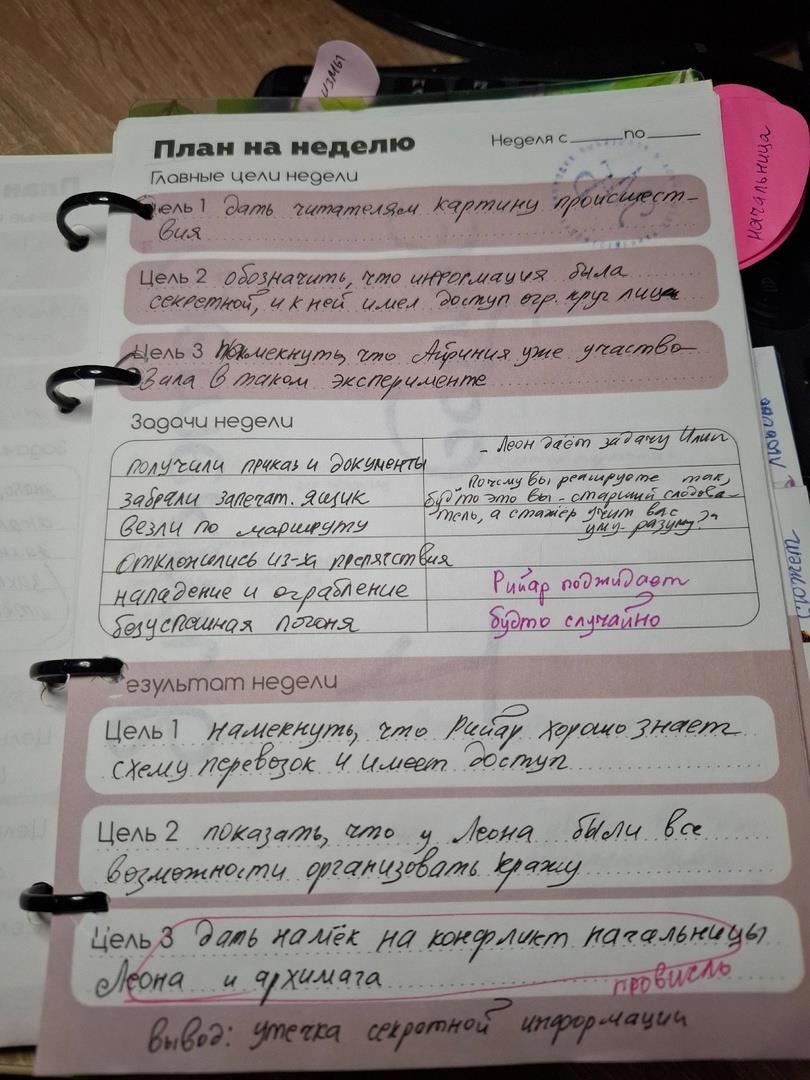 измы
План на неделю
Неделя с ____ по ____
Главные цели недели
начальница
Цель 1 дать читателям картину происшест-
вия
Цель 2 обозначить, что информация была
секретной, и к ней имел доступ огр. круг лица
Цель 3 Намекнуть, что Айриния уже участво-
вала в таком эксперименте
Задачи недели
- Леон даёт задачу Илии
получили приказ и документы
Почему вы реагируете так,
забрали запечат. ящик
будто это вы - старший следова-
везли по маршруту
тель, а стажёр учит вас
уму-разуму?
отклонились из-за препятствия
нападение и ограбление
Рийар поджидает
безуспешная погоня
будто случайно
любовь
сюжет
езультат недели
Цель 1 намекнуть, что Рийар хорошо знает
схему перевозок и имеет доступ
Цель 2 показать, что у Леона были все
возможности организовать кражу
Цель 3 дать намёк на конфликт начальницы
Леона и архимага
провисль
вывод: утечка секретной информации